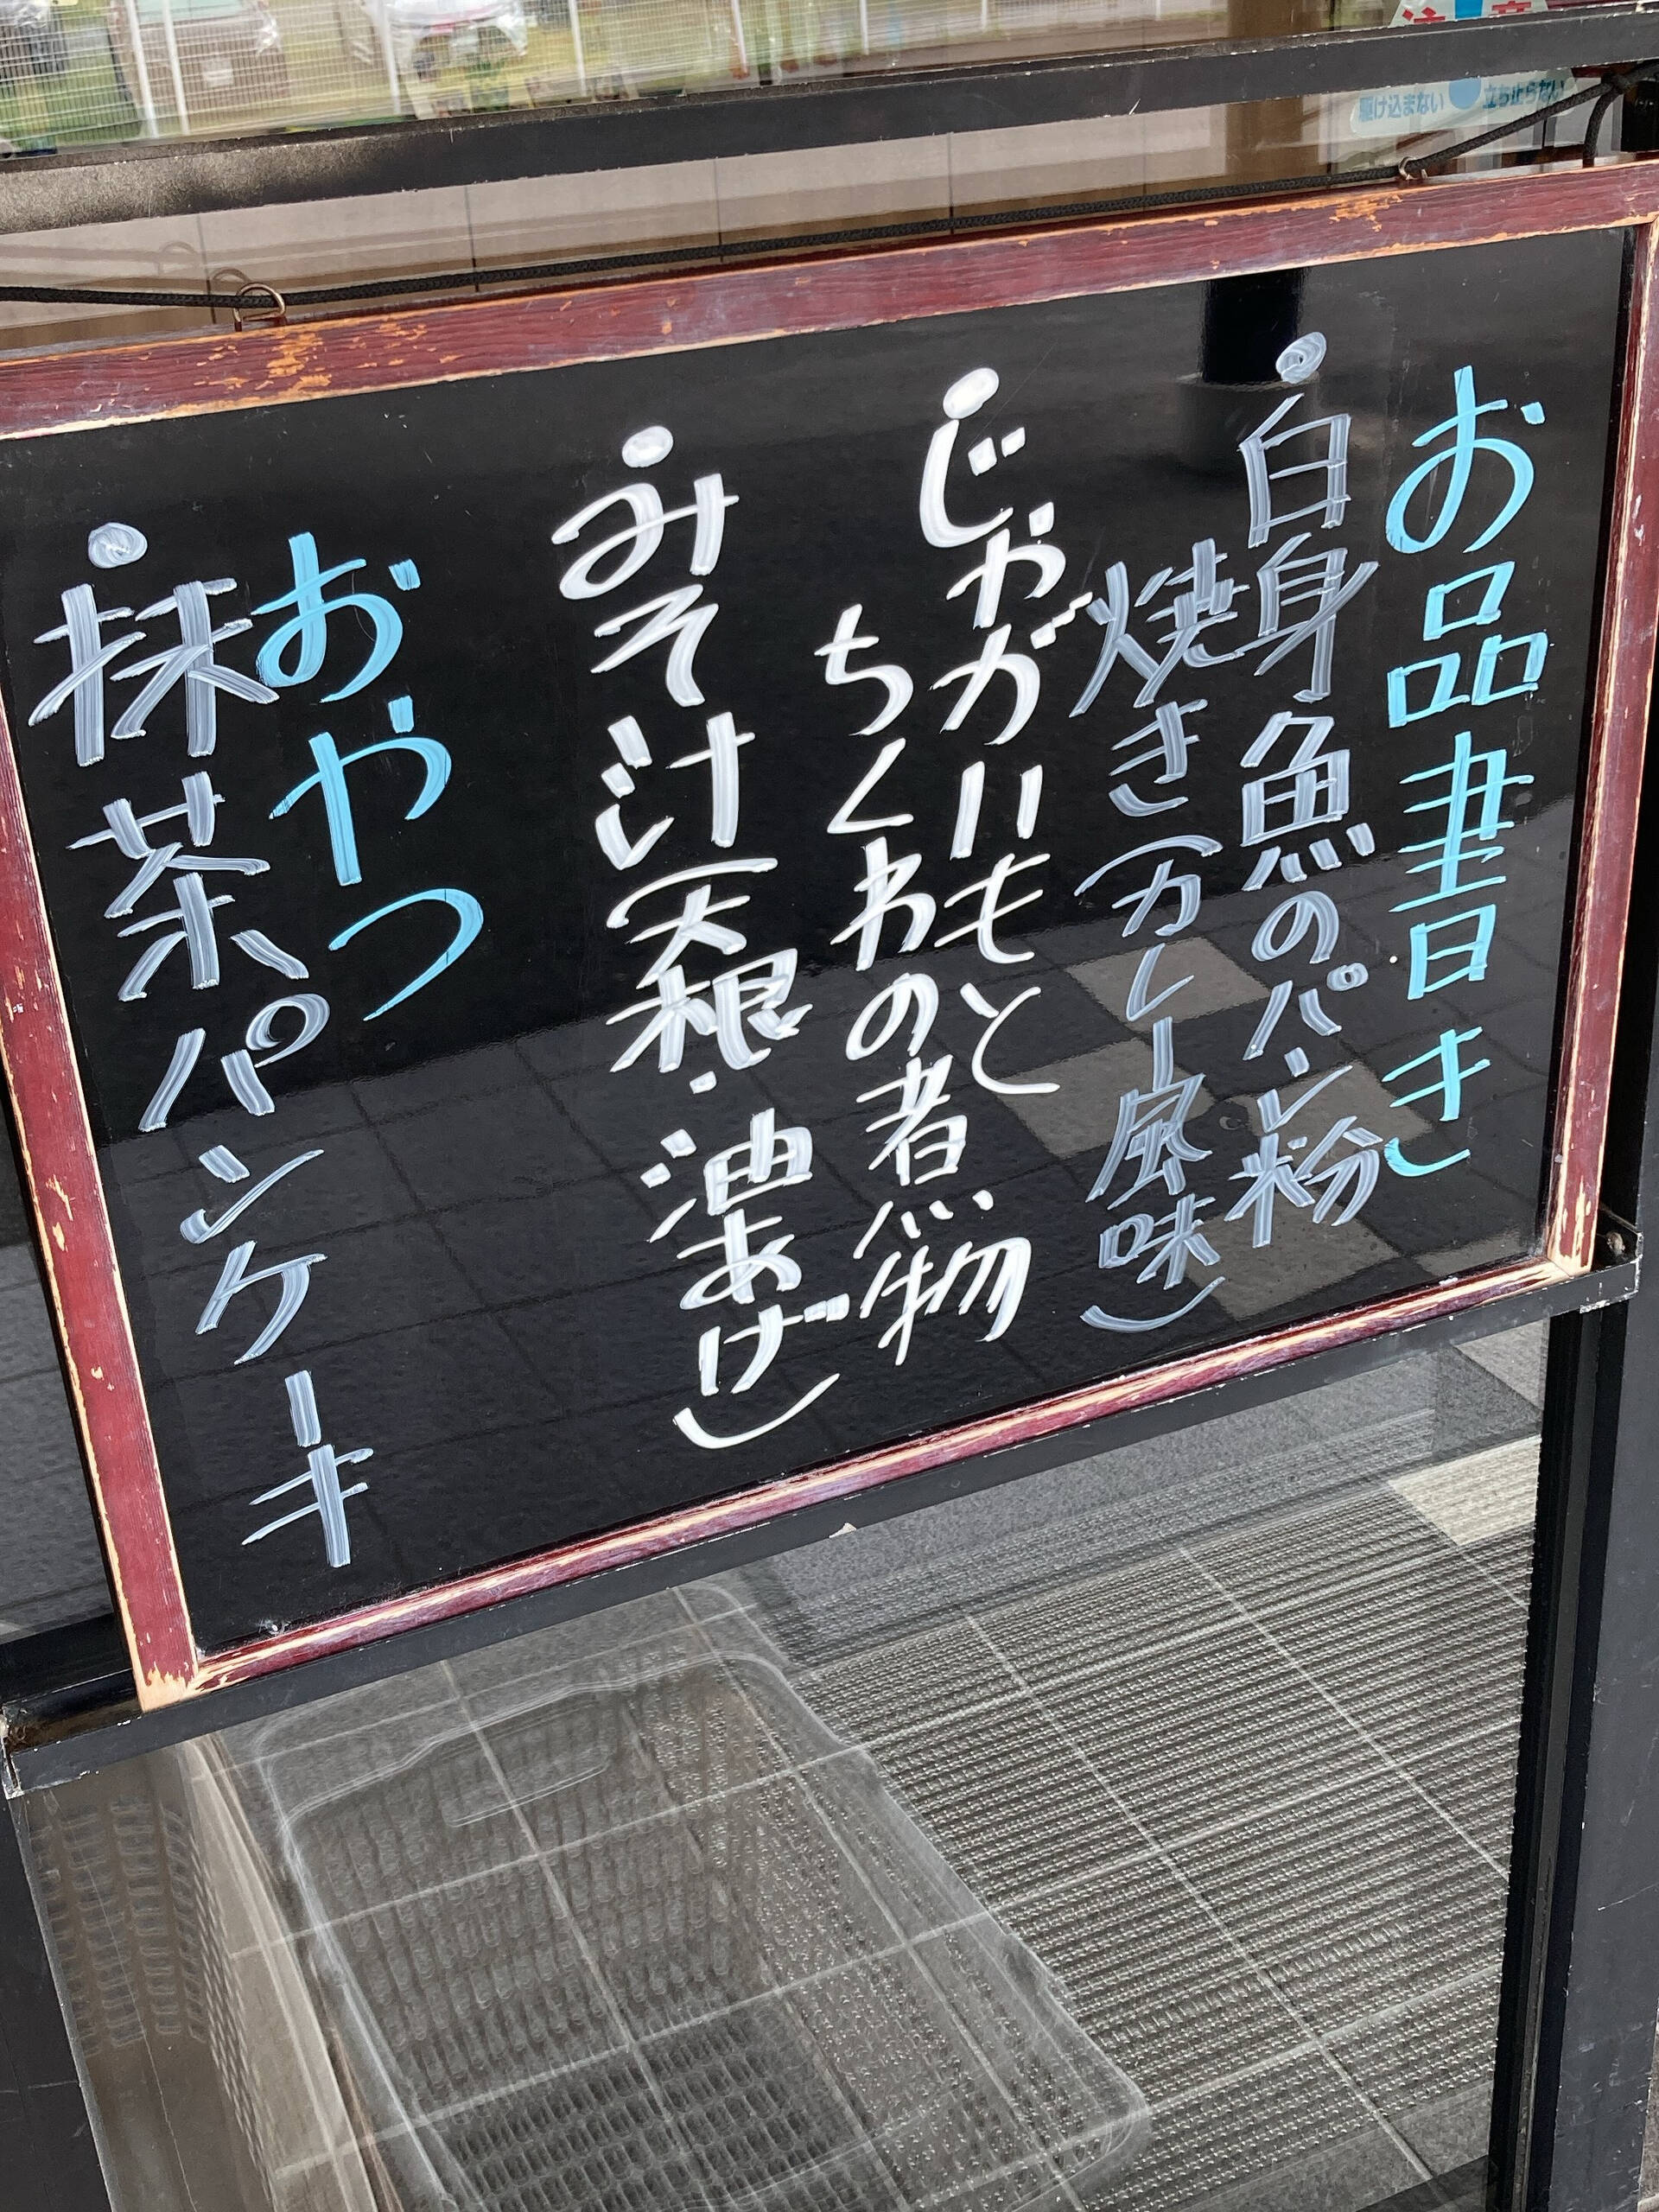 お品書き
・白身魚のパン粉
焼き(カレー風味)
・じゃがいもと
ちくわの煮物
・みそ汁(大根・油あげ)
おやつ
・抹茶パンケーキ
注 意
駆け込まない 立ち止らない